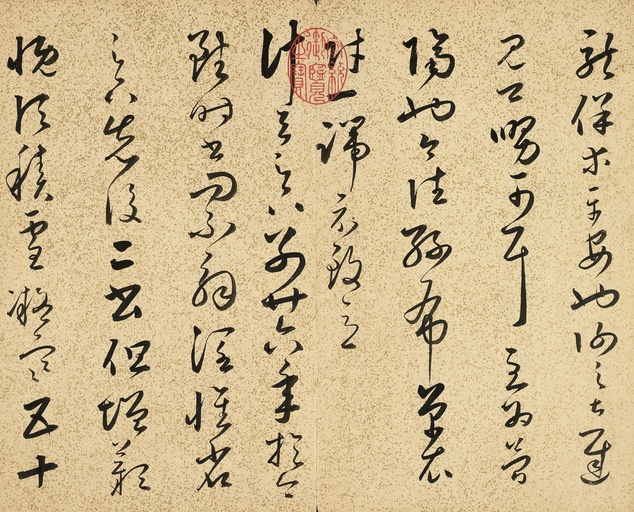 龍保等平安也謝之甚遲
見卿舅可耳至為簡
隔也今往絲布單衣
財一端示致意
計與足下別廿六年於今
雖時書問不解闊懷省
足下先後二書但增歎
慨頃積雪凝寒五十